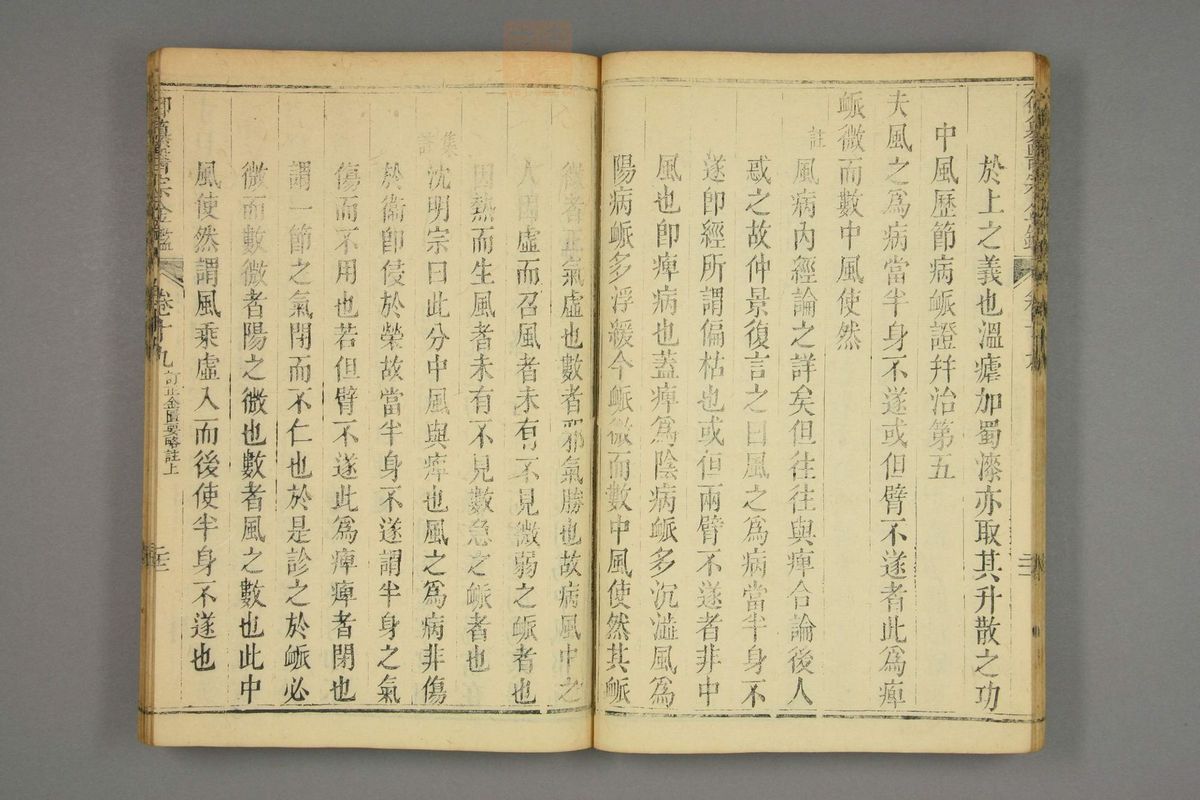 於上之義也溫瘧加蜀漆亦取其升散之功
中風歷節病脈證并治第五
夫風之為病當半身不遂或但臂不遂者此為痺
脈微而數中風使然
註
風病內經論之詳矣但往往與痺合論後人
惑之故仲景復言之曰風之為病當半身不
遂即經所謂偏枯也或但兩臂不遂者非中
風也即痺病也蓋痺為陰病脈多沉澁風為
陽病脈多浮緩今脈微而數中風使然其脈
微者正氣虛也數者邪氣勝也故病風中之
人因虛而召風者未有不見微弱之脈者也
因熱而生風者未有不見數急之脈者也
集註
沈明宗曰此分中風與痺也風之為病非傷
於衞即侵於榮故當半身不遂謂半身之氣
傷而不用也若但臂不遂此為痺痺者閉也
謂一節之氣閉而不仁也於是診之於脈必
微而數微者陽之微也數者風之數也此中
風使然謂風乘虛入而後使半身不遂也
御纂醫宗金鑑
卷十九
訂正金匱要略註上